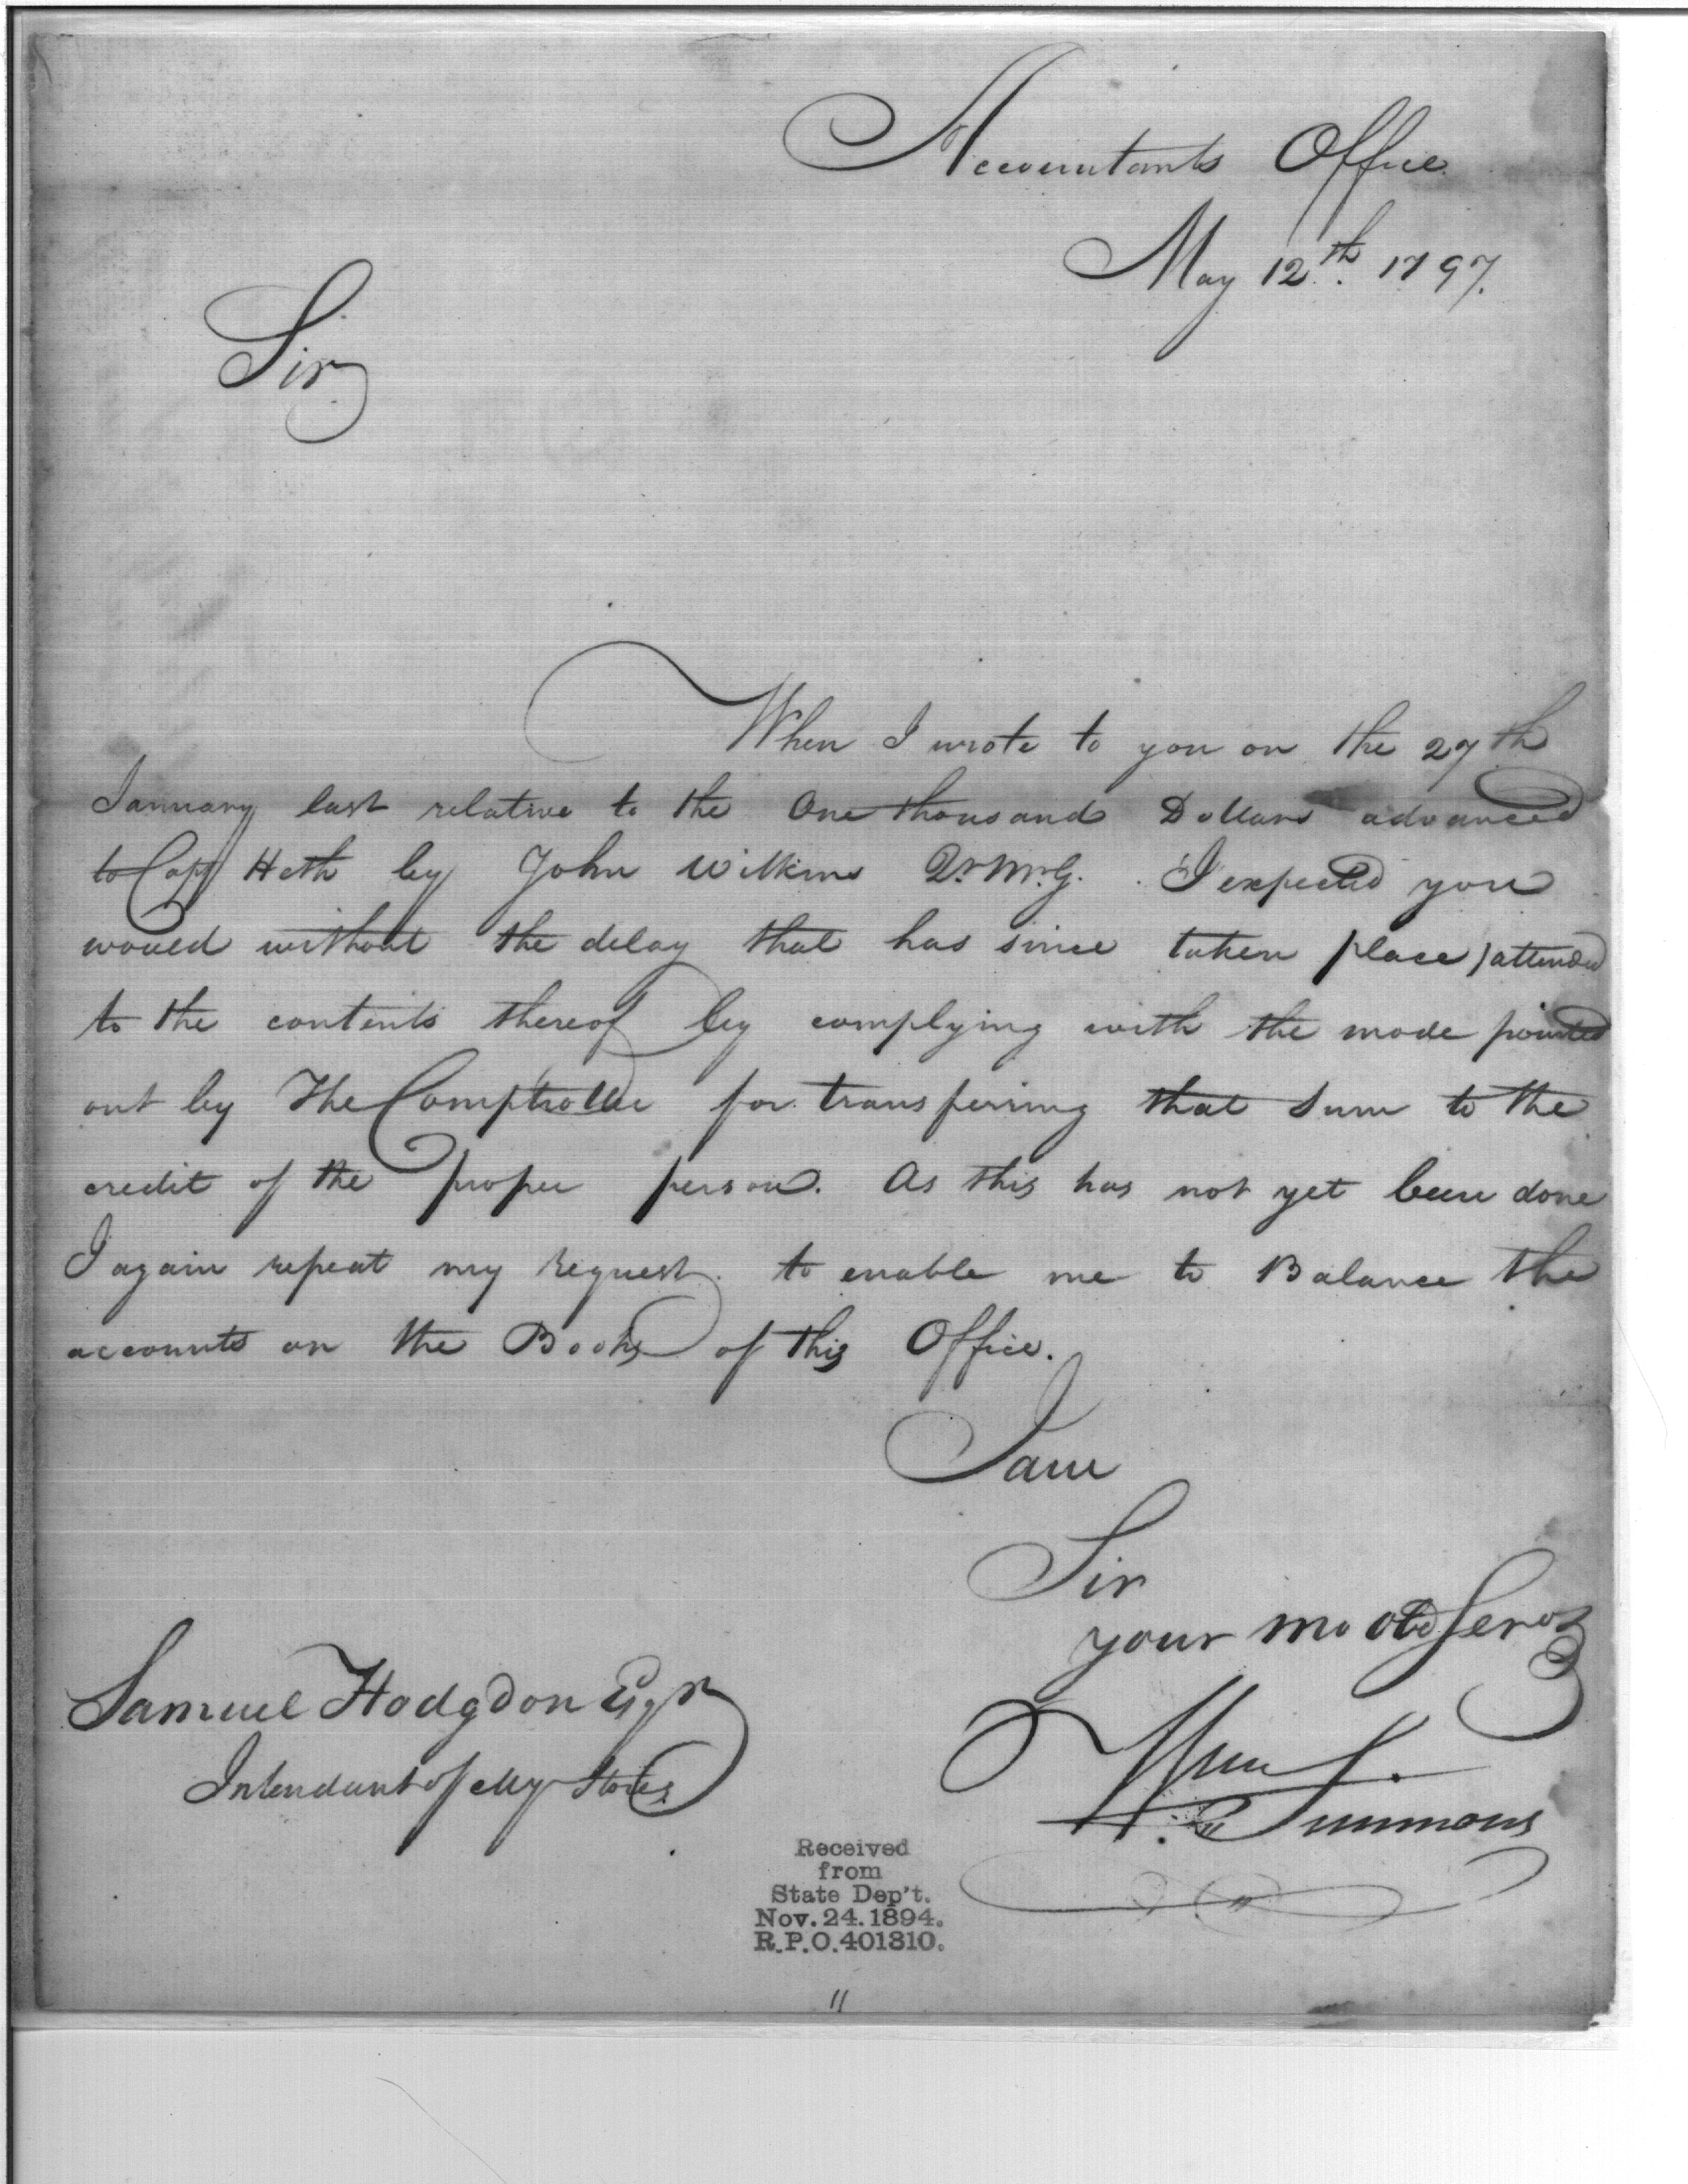 Accountants Office
May 12th. 1797.
Sir
When I wrote to you on the 27th
January last relative to the One thousand Dollars advanced
to Capt Heth by John Wilkins Qr. Mr. G. I expected you
would without the delay that has since taken place) attended
to the contents thereof by complying with the mode pointed
out by The Comptroller for transferring that Sum to the
credit of the proper person. As this has not yet been done
I again repeat my request. to enable me to Balance the
accounts on the Books of this Office.
I am
Sir
your mo obd Servt
Wm
Simmons
Samuel Hodgdon Esqr
Intendant of Mily Stores.
Received
from
State Dep't.
Nov. 24. 1894.
R.P.O. 401310.
11